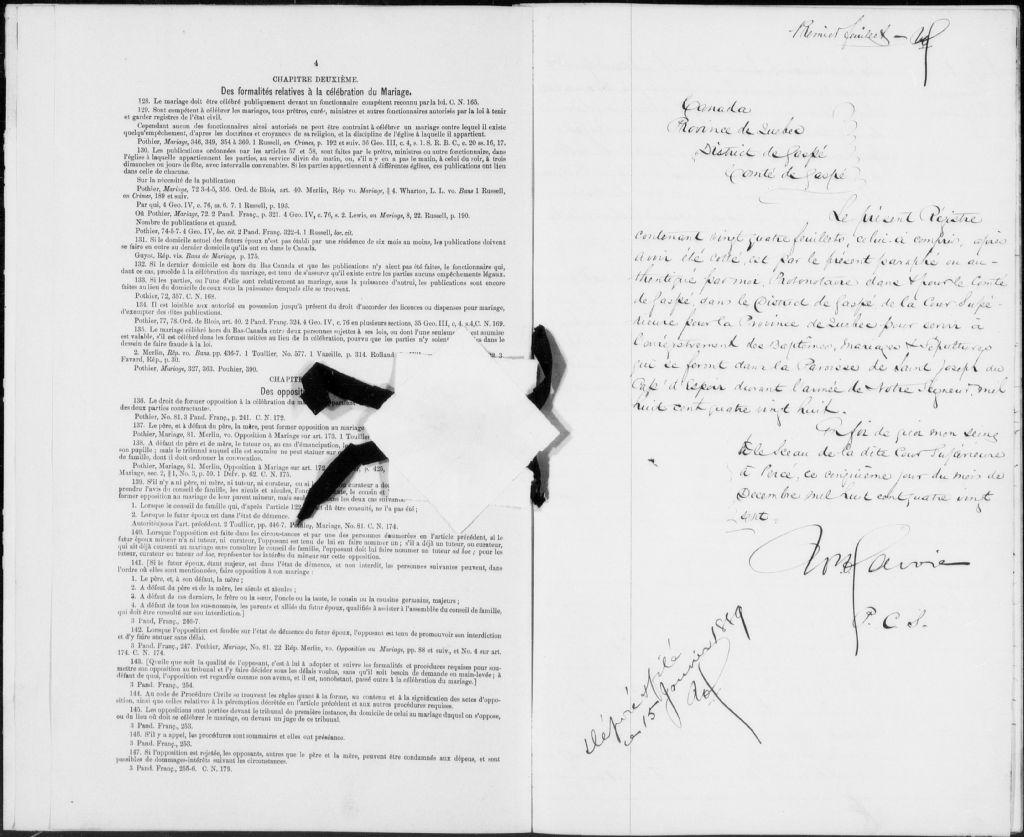 4
CHAPITRE DEUXIÈME.
Des formalités relatives à la célébration du Mariage.
128. Le mariage doit être célébré publiquement devant un fonctionnaire compétent reconnu par la loi. C. N. 165.
129. Sont compétent à célébrer les mariages, tous prêtres, curés, ministres et autres fonctionnaires autorisés par la loi à tenir
et garder registres de l'état civil.
Cependant aucun des fonctionnaires ainsi autorisés ne peut être contraint à célébrer un mariage contre lequel il existe
quelqu'empêchement, d'après les doctrines et croyances de sa religion, et la discipline de l'église à laquelle il appartient.
Pothier, Mariage, 346, 349, 354 à 360. 1 Russell, on Crimes, p. 192 et suiv. 36 Geo. III, c. 4, s. 1. S. R. B. C., c. 20 ss. 16, 17.
130. Les publications ordonnées par les articles 57 et 58, sont faites par le prêtre, ministre ou autre fonctionnaire, dans
l'église à laquelle appartiennent les parties, au service divin du matin, ou, s'il n'y en a pas le matin, à celui du soir, à trois
dimanches ou jours de fête, avec intervalle convenables. Si les parties appartiennent à différentes églises, ces publications ont lieu
dans celle de chacune.
Sur la nécessité de la publication
Pothier, Mariage, 72 3-4-5, 356. Ord. de Blois, art. 40. Merlin, Rép vo. Mariage, § 4. Wharton, L. L. vo. Bans 1 Russell,
on Crimes, 189 et suiv.
Par qui, 4 Geo. IV, c. 76, ss. 6. 7. 1 Russell, p. 193.
Où Pothier, Mariage, 72. 2 Pand. Franç., p. 321. 4 Geo. IV, c. 76, s. 2. Lewis, on Mariage, 8, 22. Russell, p. 190.
Nombre de publications et quand.
Pothier, 74-5-7. 4 Geo. IV, loc. cit. 2 Pand. Franç. 322-4. 1 Russell, loc. cit.
131. Si le domicile actuel des futurs époux n'est pas établi par une résidence de six mois au moins, les publications doivent
se faire en outre au dernier domicile qu'ils ont eu dans le Canada.
Guyot, Rép. vis. Bans de Mariage, p. 175.
132. Si le dernier domicile est hors du Bas Canada et que les publications n'y aient pas été faites, le fonctionnaire qui,
dans ce cas, procède à la célébration du mariage, est tenu de s'assurer qu'il existe entre les parties aucuns empêchements légaux.
133. Si les parties, ou l'une d'elle sont relativement au mariage, sous la puissance d'autrui, les publications sont encore
faites au lieu du domicile de ceux sous la puissance desquels elle se trouvent.
Pothier, 72, 357. C. N. 168.
134. Il est loisible aux autorité en possession jusqu'à présent du droit d'accorder des licences ou dispenses pour mariage,
d'exempter des dites publications.
Pothier, 77, 78. Ord. de Blois, art. 40. 2 Pand. Franç. 324. 4 Geo. IV, c. 76 en plusieurs sections, 35 Geo. III, c. 4, s. 4, C. N. 169.
135. Le mariage célébré hors du Bas-Canada entre deux personnes sujettes à ses lois, ou dont l'une seulement
est valable, s'il est célébré dans les formes usitées au lieu de la célébration, pourvu que les parties n'y soient dans le
dessein de faire fraude à la loi.
2. Merlin, Rép. vo. Bans. pp. 436-7. 1 Toullier, No. 577. 1 Vazeille. p. 314. Rolland
Favard, Rép., p. 30.
Pothier, Mariage, 327, 363. Pouhier, 390.
CHAPIT
Des opposit
136. Le droit de former opposition à la célébration du
des deux parties contractantes.
Pothier, No. 81. 3 Pand. Franç., p. 241. C. N. 172.
137. Le père, et à défaut du père, la mère, peut former opposition au mariage
Pothier, Mariage, 81. Merlin, vo. Opposition à Mariage sur art. 173. 1 Toullier
138. A défaut de père et de mère, le tuteur ou, au cas d'émancipation, le
son pupille; mais le tribunal auquel elle est soumise ne peut statuer sur
de famille, dont il doit ordonner la convocation.
Pothier, Mariage, 81. Merlin, Opposition à Mariage sur art. 172 p. 425,
Mariage, sec. 2, § 1, No. 3, p. 59. 1 Delv. p. 62. C. N. 175.
139. S'il n'y a ni père, ni mère, ni tuteur, ni curateur, ou si curateur a
prendre l'avis du conseil de famille, les aïeuls et aïeules, l'onc le cousin et
former opposition au mariage de leur parent mineur, mais les deux cas suivants
1. Lorsque le conseil de famille qui, d'après l'article 122, dû être consulté, ne l'a pas été;
2. Lorsque le futur époux est dans l'état de démence.
Autorités sous l'art. précédent. 2 Toullier, pp. 446-7. Pothier, Mariage, No. 81. C. N. 174.
140. Lorsque l'opposition est faite dans les circonstances et par une des personnes énumérées en l'article précédent, si le
futur époux mineur n'a ni tuteur, ni curateur, l'opposant est tenu de lui en faire nommer un; s'il a déjà un tuteur, ou curateur,
qui ait déjà consenti au mariage sans consulter le conseil de famille, l'opposant doit lui faire nommer un tuteur ad hoc; pour les
tuteur, curateur ou tuteur ad hoc, représenter les intérêts du mineur sur cette opposition.
141. [Si le futur époux, étant majeur, est dans l'état de démence, et non interdit, les personnes suivantes peuvent, dans
l'ordre où elles sont mentionnées, faire opposition à son mariage:
1. Le père, et, à son défaut, la mère;
2. A défaut du père et de la mère, les aïeuls et aïeules;
3. A défaut de ces derniers, le frère ou la sœur, l'oncle ou la tante, le cousin ou la cousine germains, majeurs;
4. A défaut de tous les sus-nommés, les parents et alliés du futur époux, qualifiés à assister à l'assemblée du conseil de famille,
qui doit être consulté sur son interdiction.]
3 Pand. Franç., 246-7.
142. Lorsque l'opposition est fondée sur l'état de démence du futur époux, l'opposant est tenu de promouvoir son interdiction
et d'y faire statuer sans délai.
3 Pand. Franç., 247. Pothier, Mariage, No. 81. 22 Rép. Merlin, vo. Opposition au Mariage, pp. 88 et suiv., et No. 4 sur art.
174. C. N. 174.
143. [Quelle que soit la qualité de l'opposant, c'est à lui à adopter et suivre les formalités et procédures requises pour sou-
mettre son opposition au tribunal et l'y faire décider sous les délais voulus, sans qu'il soit besoin de demande en main-levée; à
défaut de quoi, l'opposition est regardée comme non avenu, et il est, nonobstant, passé outre à la célébration du mariage.]
3 Pand. Franç., 254.
144. Au code de Procédure Civile se trouvent les règles quant à la forme, au contenu et à la signification des actes d'oppo-
sition, ainsi que celles relatives à la péremption décrétée en l'article précédent et aux autres procédures requises.
145. Les oppositions sont portées devant le tribunal de première instance, du domicile de celui au mariage duquel on s'oppose,
ou du lieu où doit se célébrer le mariage, ou devant un juge de ce tribunal.
3 Pand. Franç., 253.
146. S'il y a appel, les procédures sont sommaires et elles ont préséance.
3 Pand. Franç., 253.
147. Si l'opposition est rejetée, les opposants, autres que le père et la mère, peuvent être condamnés aux dépens, et sont
passibles de dommages-intérêts suivant les circonstances.
3 Pand. Franç., 255-6. C. N. 179.
Premier feuillet —
Canada
Province de Québec
District de Gaspé
Comté de Gaspé
Le présent Régistre
contenant vingt quatre feuillets, celui-ci compris, après
avoir été coté, est par le présent paraphé ou au-
thentiqué par moi, Protonotaire dans & pour le Comté
de Gaspé, dans le District de Gaspé de la Cour Supé-
rieure pour la Province de Québec pour servir à
l'enrégistrement des Baptêmes, Mariages & Sépultures
qui se feront dans la Paroisse de Saint Joseph du
Cap d'Espoir durant l'année de Notre Seigneur, mil
huit cent quatre vingt huit.
En foi de quoi mon seing
& le sceau de la dite Cour Supérieure
à Percé, ce cinquième jour du mois de
Décembre mil huit cent quatre vingt
sept.
Lavoie
P. C. S.
Déposé & filé
ce 15 Janvier 1889